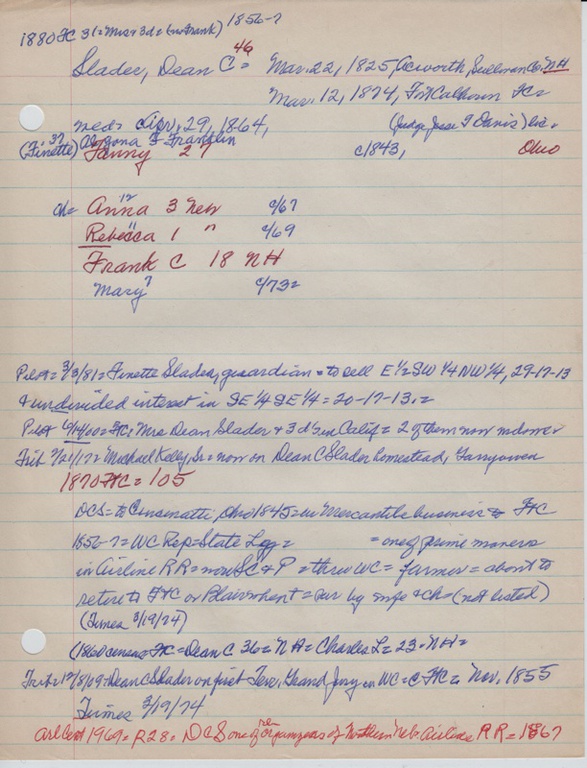 1880 FC 31= Mrs & 3 d= (no Frank) 1856-7
Slader, Dean C 46 = Mar. 22, 1825, Acworth, Sullivan Co. NH
Mar. 12, 1874, Ft Calhoun FC=
med= Apr. 29, 1864, (Judge Jesse T Davis) lic.
37 Algona F Franklin
(Finette) Fanny 27 c1843, Ohio
ch= Anna 12 3 Neb c/67
Rebecca 11 1 " c/69
Frank C 18 NH
Mary 7 c/73=
Pilot= 3/3/81= Finette Slader, guardian = to sell E ½ SW ¼ NW ¼, 29-17-13
& undivided interest in SE ¼ SE ¼ = 20-17-13.=
Pilot 6/14/00= FC, Mrs Dean Slader & 3 d's in Calif = 2 of them now mdom=
Trib 7/21/172 Michael Kelly, Sr= now on Dean C Slader homestead, Garryowen
1870 FC = 105
DCS= to Cincinatti, Ohio 1845= in Mercantile business = FC
1856-7= WC Rep= State Leg= = one of prime movers
in Airline RR= now SC & P = thru WC= farmer = about to
retire to FC or Blair when = sur by wife & ch= (not listed)
(Times 3/19/74)
(1860 census FC= Dean C 36= NH= Charles L= 23= NH=
Trib= 12/8/09= Dean C Slader on first Terr. Grand Jury in WC= @ FC= Nov. 1855
Times 3/19/74
Arl Cent 1969= p 28= DCS one of re-organizers of Northern Neb Airline RR = 1867